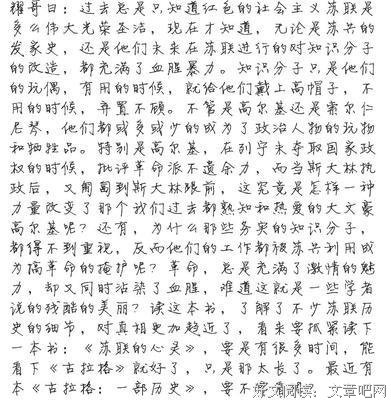 耀哥曰：过去总是只知道红色的社会主义苏联是
多么伟大光荣圣洁，现在才知道，无论是苏共的
发家史，还是他们未来在苏联进行的对知识分子
的改造，都充满了血腥暴力。知识分子只是他们
的玩偶，有用的时候，就给他们戴上高帽子，不
用的时候，弃置不顾。不管是高尔基还是索尔仁
尼琴，他们都或多或少的成为了政治人物的玩物
和牺牲品。特别是高尔基，在列宁未夺取国家政
权的时候，批评革命派不遗余力，而当斯大林执
政后，又匍匐到斯大林跟前，这究竟是怎样一种
力量改变了那个我们过去都熟知和热爱的大文豪
高尔基呢？还有，为什么那些务实的知识分子，
都得不到重视，反而他们的工作都被苏共利用成
为搞革命的掩护呢？革命，总是充满了激情的魅
力，却又同时沾染了血腥，难道这就是一些学者
说的残酷的美丽？读这本书，了解了不少苏联历
史的细节，对真相更加趋近了，看来要抓紧读下
一本书：《苏联的心灵》，要是有很多时间，能
看下《古拉格》就好了，只是那太长了。最近有
本《古拉格：一部历史》，要不
好文阅读：文章吧网